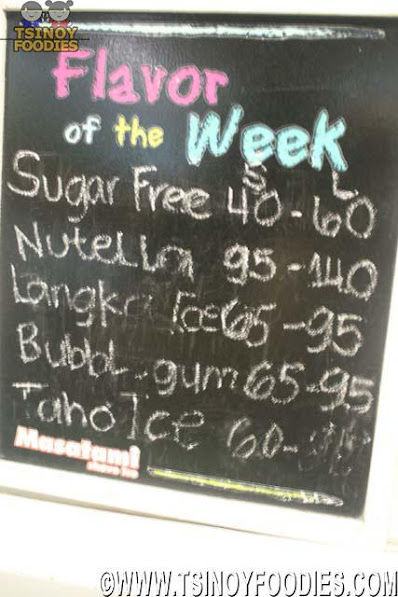 TSINOY
FOODIES
Flavor
of the Week
S L
Sugar Free 40-60
Nutella 95-140
Langka Ice 65-95
Bubbl-gum 65-95
Taho Ice 60-
Masatami
shave ice
©WWW.TSINOYFOODIES.COM